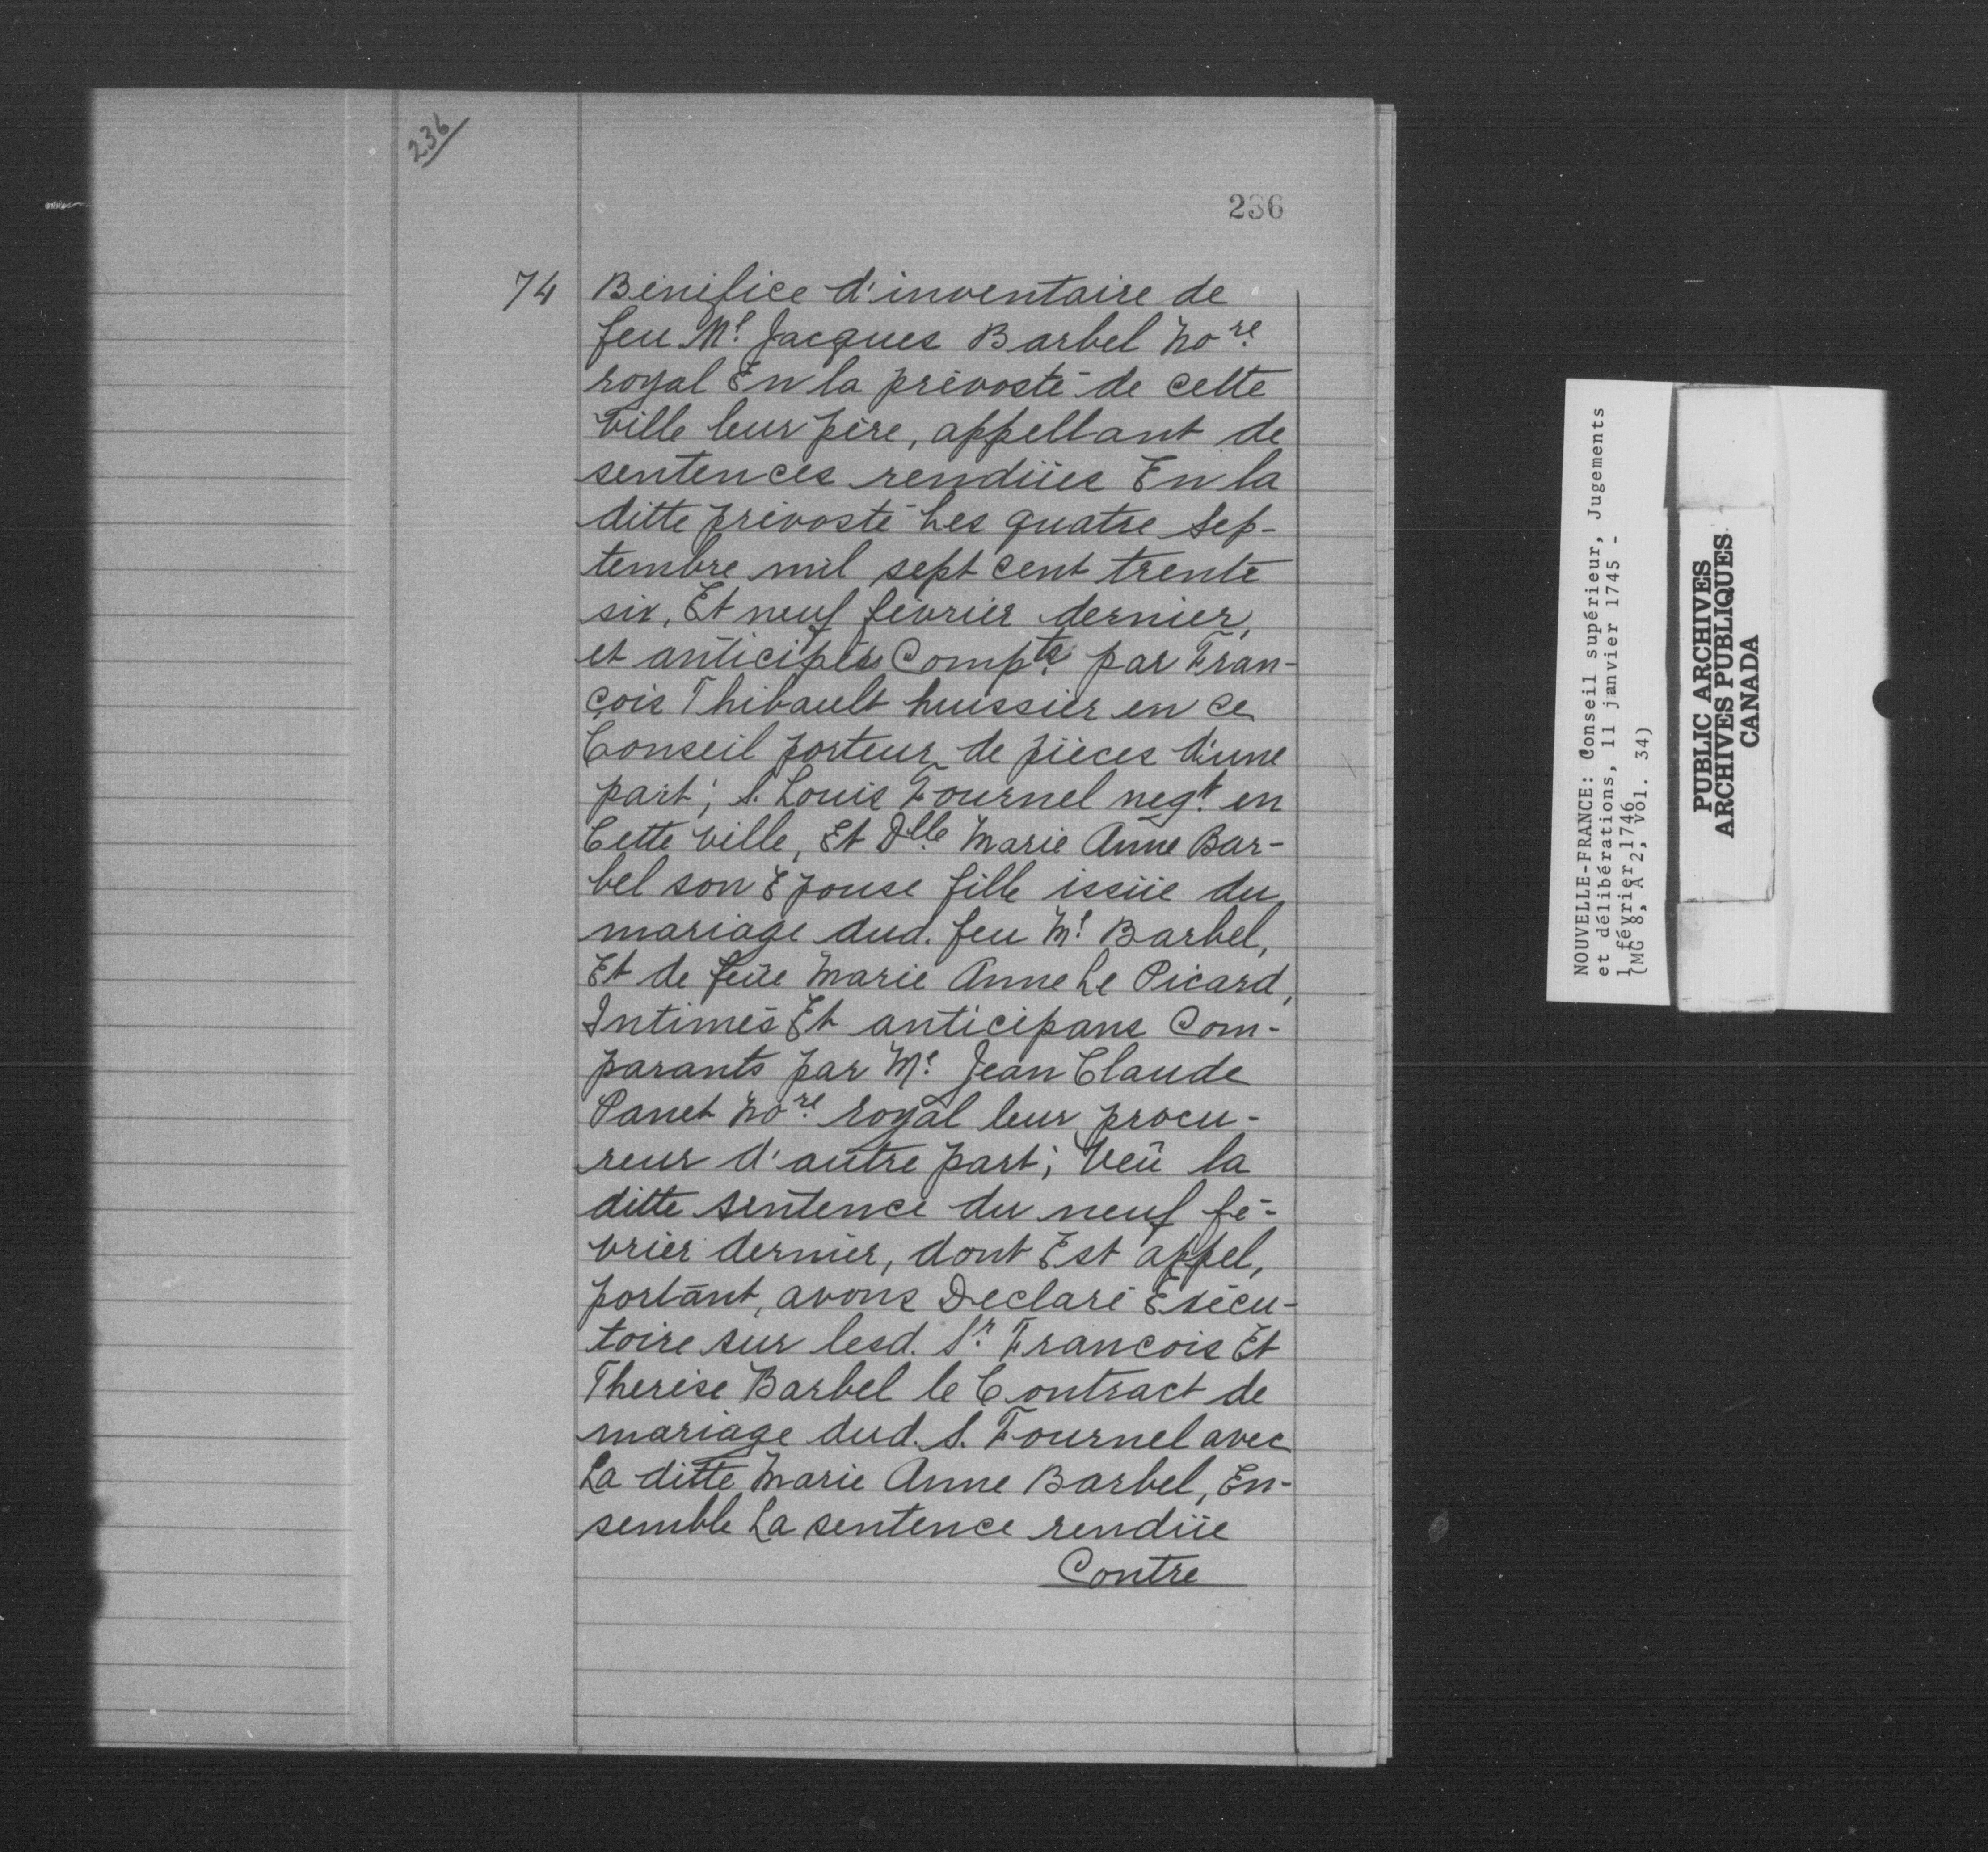 236
236
74 Bénifice d'inventaire de
feu Mᵉ. Jacques Barbel Noʳᵉ.
royal En la prévosté de cette
ville leur père, appellant de
sentences rendües En la
ditte prévosté Les quatre Sep-
tembre mil sept cent trente
six, Et neuf février dernier,
et anticipés Compᵗˢ. par Fran-
çois Thibault huissier en ce
Conseil porteur de pièces d'une
part; S. Louis Fournel negᵗ. en
Cette ville, Et Dˡˡᵉ Marie Anne Bar-
bel son Epouse fille issüe du
mariage dud. feu Mᵉ. Barbel,
Et de feüe Marie Anne Le Picard,
Intimés Et anticipans Com-
parants par Mᵉ. Jean Claude
Panet Noʳᵉ. royal leur procu-
reur d'autre part; Veû la
ditte sentence du neuf fé-
vrier dernier, dont Est appel,
portant, avons Declaré Exécu-
toire sur lesd. Sʳ. Francois Et
Therèse Barbel le Contract de
mariage dud. S. Fournel avec
La ditte Marie Anne Barbel, En-
semble La sentence rendüe
Contre
NOUVELLE-FRANCE: Conseil supérieur, Jugements
et délibérations, 11 janvier 1745 -
1 février 1746
(MG 8, A 2, vol. 34)
PUBLIC ARCHIVES
ARCHIVES PUBLIQUES
CANADA